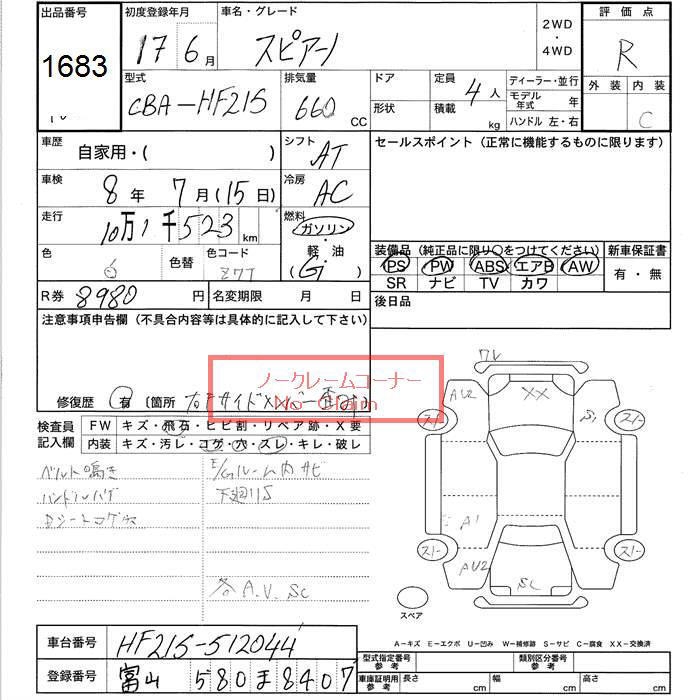 出品番号 1683
初度登録年月 17 6月
車名・グレード スピアーノ
2WD・4WD
評価点 R
型式 CBA-HF21S
排気量 660 CC
ドア
形状
定員 4人
積載 kg
ディーラー・並行
モデル年式 年
ハンドル 左・右
外装 内装 C
車歴 自家用・( )
シフト AT
セールスポイント(正常に機能するものに限ります)
車検 8年 7月(15日)
冷房 AC
走行 10万1千523km
燃料 ガソリン・軽油 (G)
色 色替 色コード Z7T
装備品(純正品に限り○をつけてください)
新車保証書 有・無
PS PW ABS エアB AW
SR ナビ TV カワ
R券 8980円
名変期限 月 日
後日品
注意事項申告欄(不具合内容等は具体的に記入して下さい)
ノークレームコーナー
No-Claim
修復歴 有 〔箇所
検査員記入欄
FW キズ・飛石・ヒビ割・リペア跡・X要
内装 キズ・汚レ・コゲ・穴・スレ・キレ・破レ
ベルト鳴き
E/Gルーム内サビ
ハンドルハゲ
下廻りS
Dシートコゲ穴
各A.U.SC
AU2
XX
スト
スト
A1
スト
スト
AU2
SC
スペア
A-キズ E-エクボ U-凹み W-補修跡 S-サビ C-腐食 XX-交換済
車台番号 HF21S-512044
登録番号 富山 580ま8407
型式指定番号 参考
類別区分番号 参考
車庫証明用参考 長さ cm 幅 cm 高さ cm